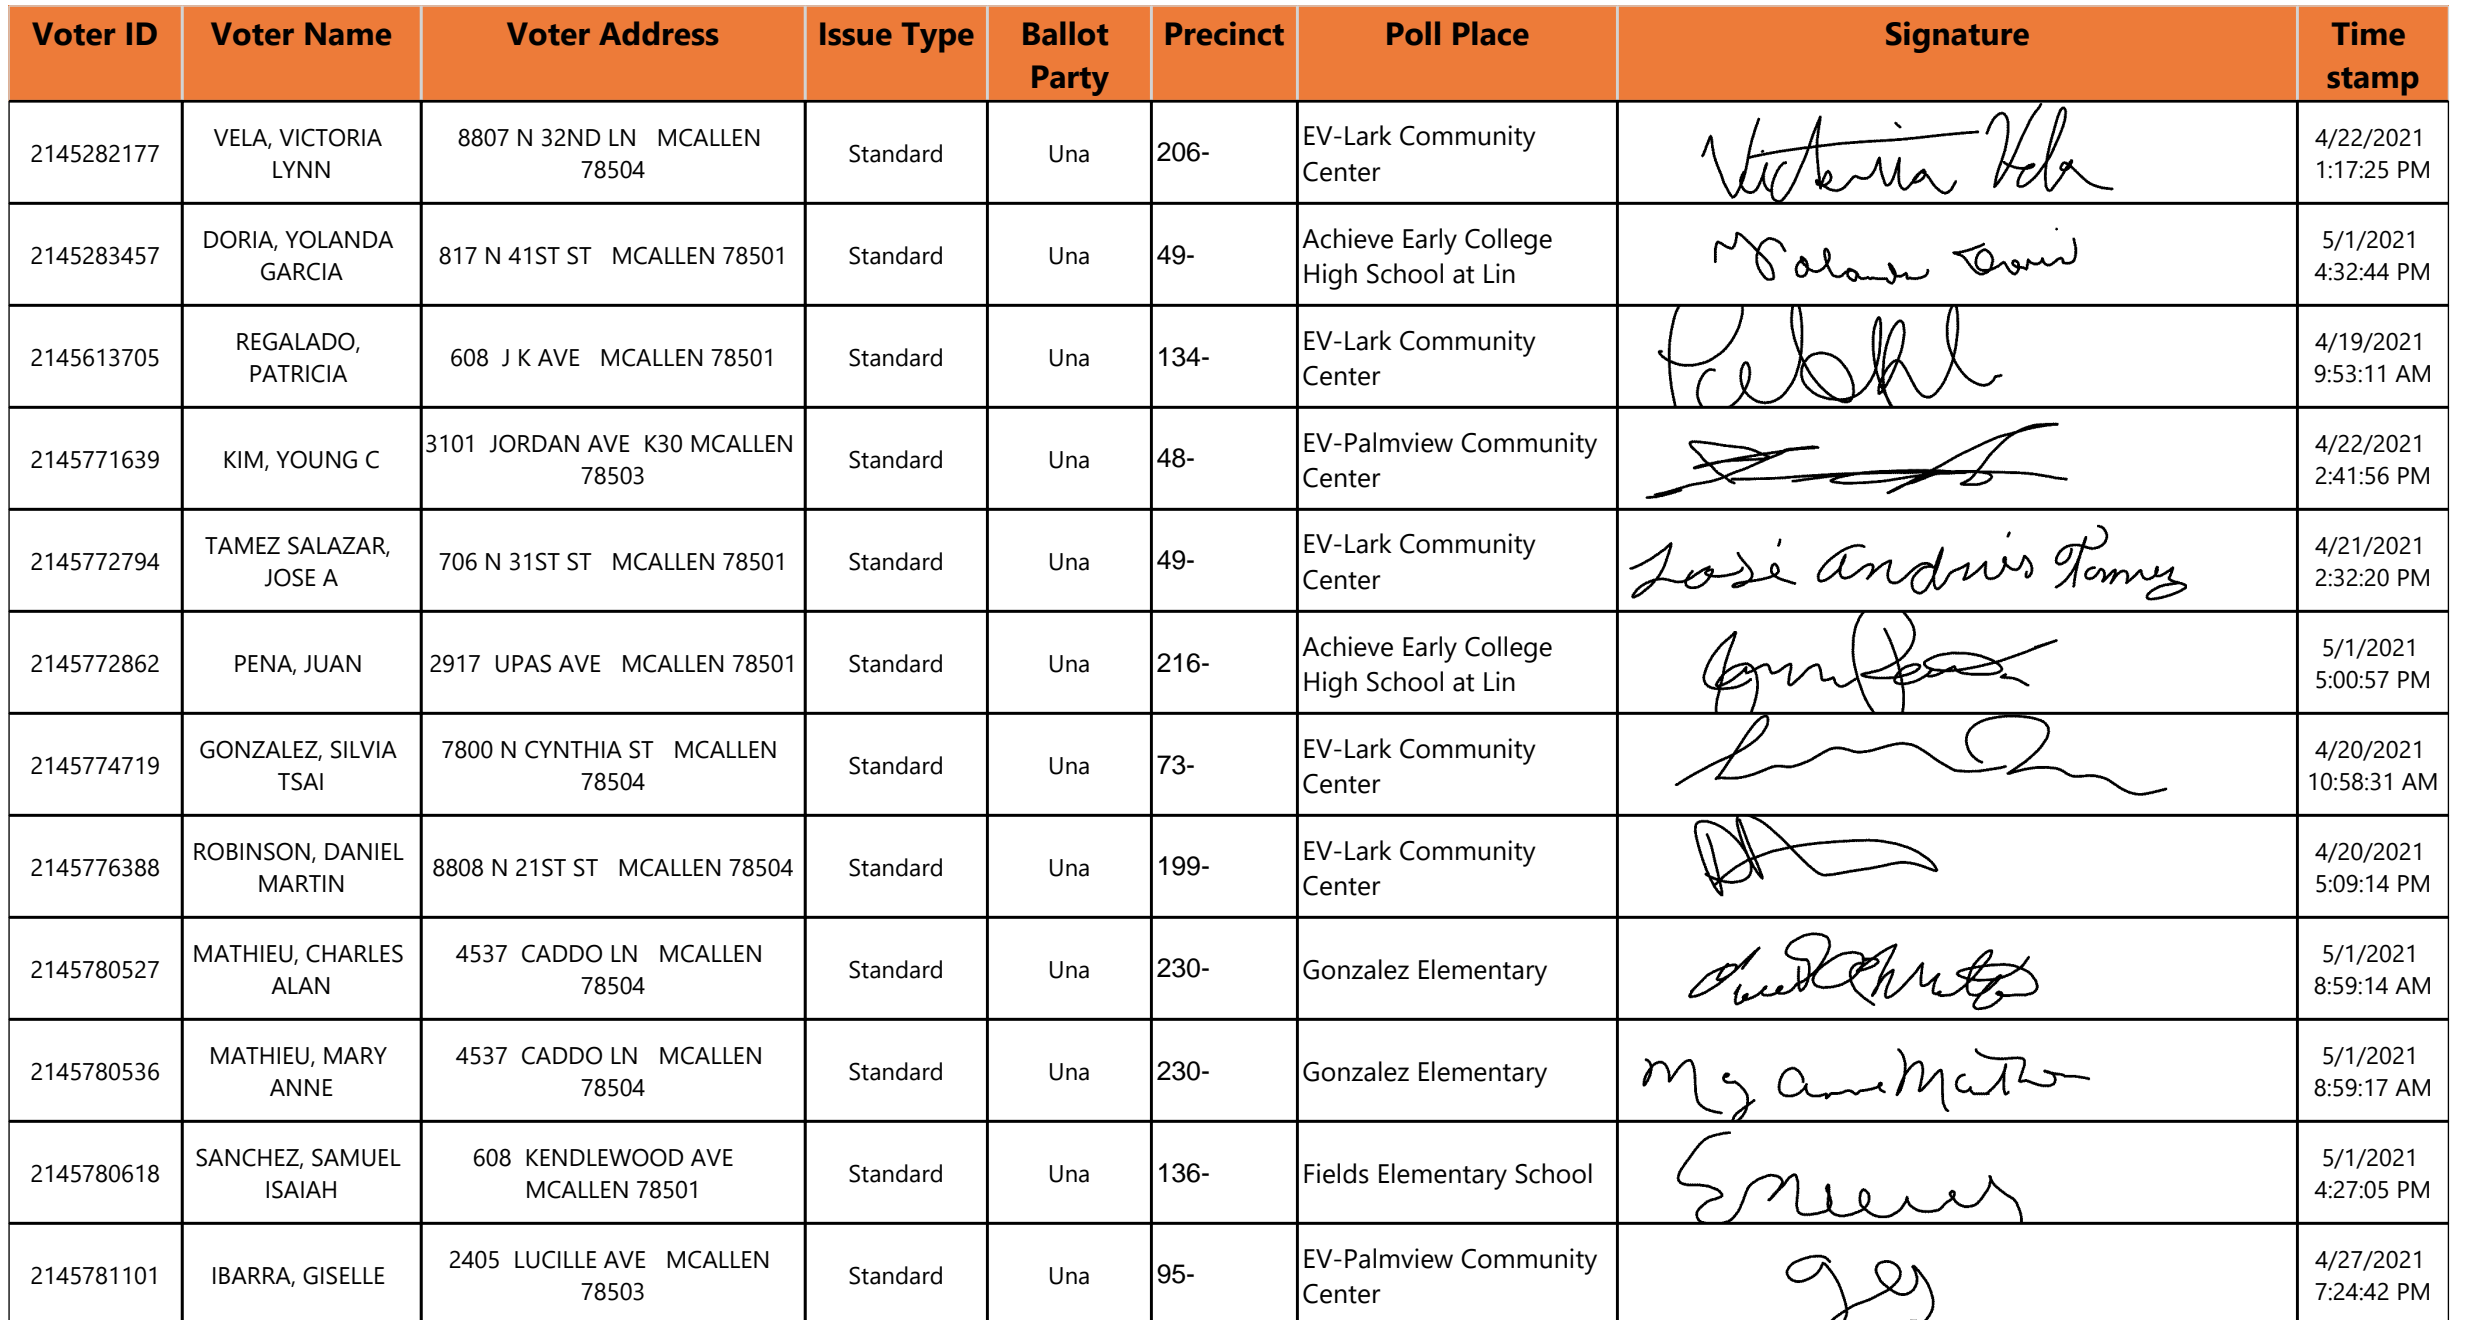 Voter ID Voter Name Voter Address Issue Type Ballot Party Precinct Poll Place Signature Time stamp
2145282177 VELA, VICTORIA LYNN 8807 N 32ND LN MCALLEN 78504 Standard Una 206- EV-Lark Community Center Victoria Vela 4/22/2021 1:17:25 PM
2145283457 DORIA, YOLANDA GARCIA 817 N 41ST ST MCALLEN 78501 Standard Una 49- Achieve Early College High School at Lin 5/1/2021 4:32:44 PM
2145613705 REGALADO, PATRICIA 608 J K AVE MCALLEN 78501 Standard Una 134- EV-Lark Community Center 4/19/2021 9:53:11 AM
2145771639 KIM, YOUNG C 3101 JORDAN AVE K30 MCALLEN 78503 Standard Una 48- EV-Palmview Community Center 4/22/2021 2:41:56 PM
2145772794 TAMEZ SALAZAR, JOSE A 706 N 31ST ST MCALLEN 78501 Standard Una 49- EV-Lark Community Center José Andrés Tamez 4/21/2021 2:32:20 PM
2145772862 PENA, JUAN 2917 UPAS AVE MCALLEN 78501 Standard Una 216- Achieve Early College High School at Lin 5/1/2021 5:00:57 PM
2145774719 GONZALEZ, SILVIA TSAI 7800 N CYNTHIA ST MCALLEN 78504 Standard Una 73- EV-Lark Community Center 4/20/2021 10:58:31 AM
2145776388 ROBINSON, DANIEL MARTIN 8808 N 21ST ST MCALLEN 78504 Standard Una 199- EV-Lark Community Center 4/20/2021 5:09:14 PM
2145780527 MATHIEU, CHARLES ALAN 4537 CADDO LN MCALLEN 78504 Standard Una 230- Gonzalez Elementary 5/1/2021 8:59:14 AM
2145780536 MATHIEU, MARY ANNE 4537 CADDO LN MCALLEN 78504 Standard Una 230- Gonzalez Elementary 5/1/2021 8:59:17 AM
2145780618 SANCHEZ, SAMUEL ISAIAH 608 KENDLEWOOD AVE MCALLEN 78501 Standard Una 136- Fields Elementary School 5/1/2021 4:27:05 PM
2145781101 IBARRA, GISELLE 2405 LUCILLE AVE MCALLEN 78503 Standard Una 95- EV-Palmview Community Center 4/27/2021 7:24:42 PM